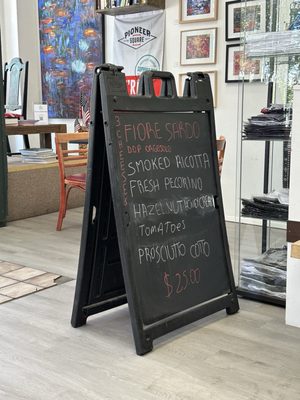 PIONEER
SQUARE
FIORE SARDO
DOP
SMOKED RICOTTA
FRESH PECORINO
HAZELNUT
TOMATOES
PROSCIUTO COTO
$25.00